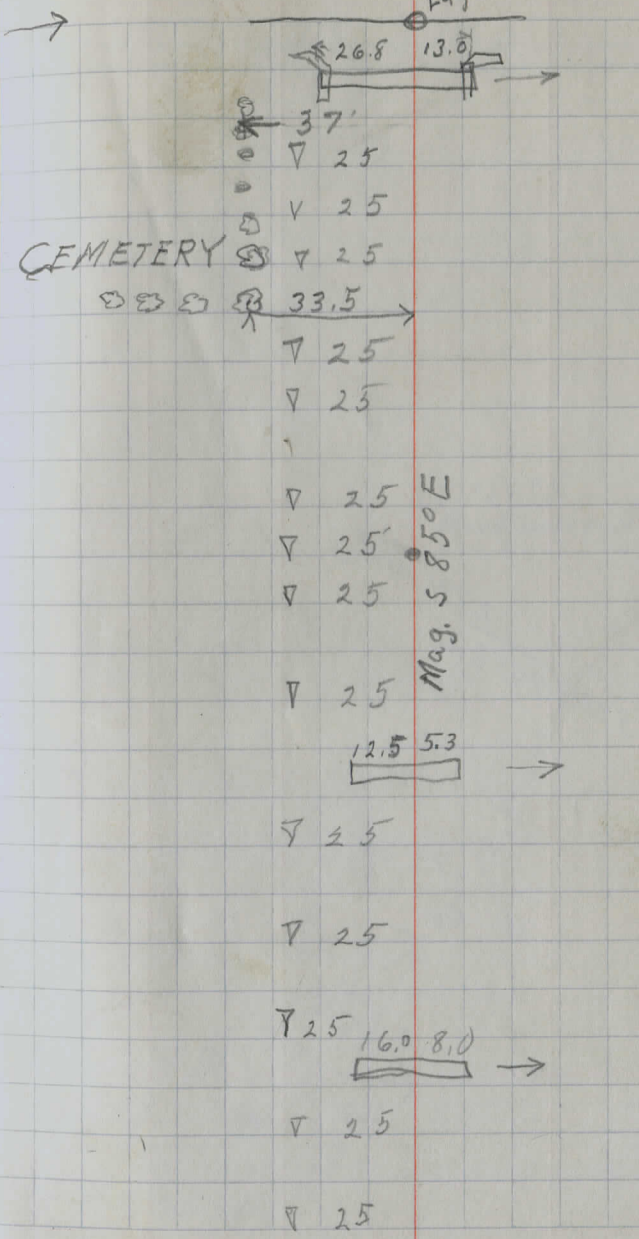 26.8 13.0
37'
25
25
CEMETERY 25
33.5
25
25
25
25
25
Mag. S 85° E
25
12.5 5.3
25
25
25
16.0 8.0
25
25